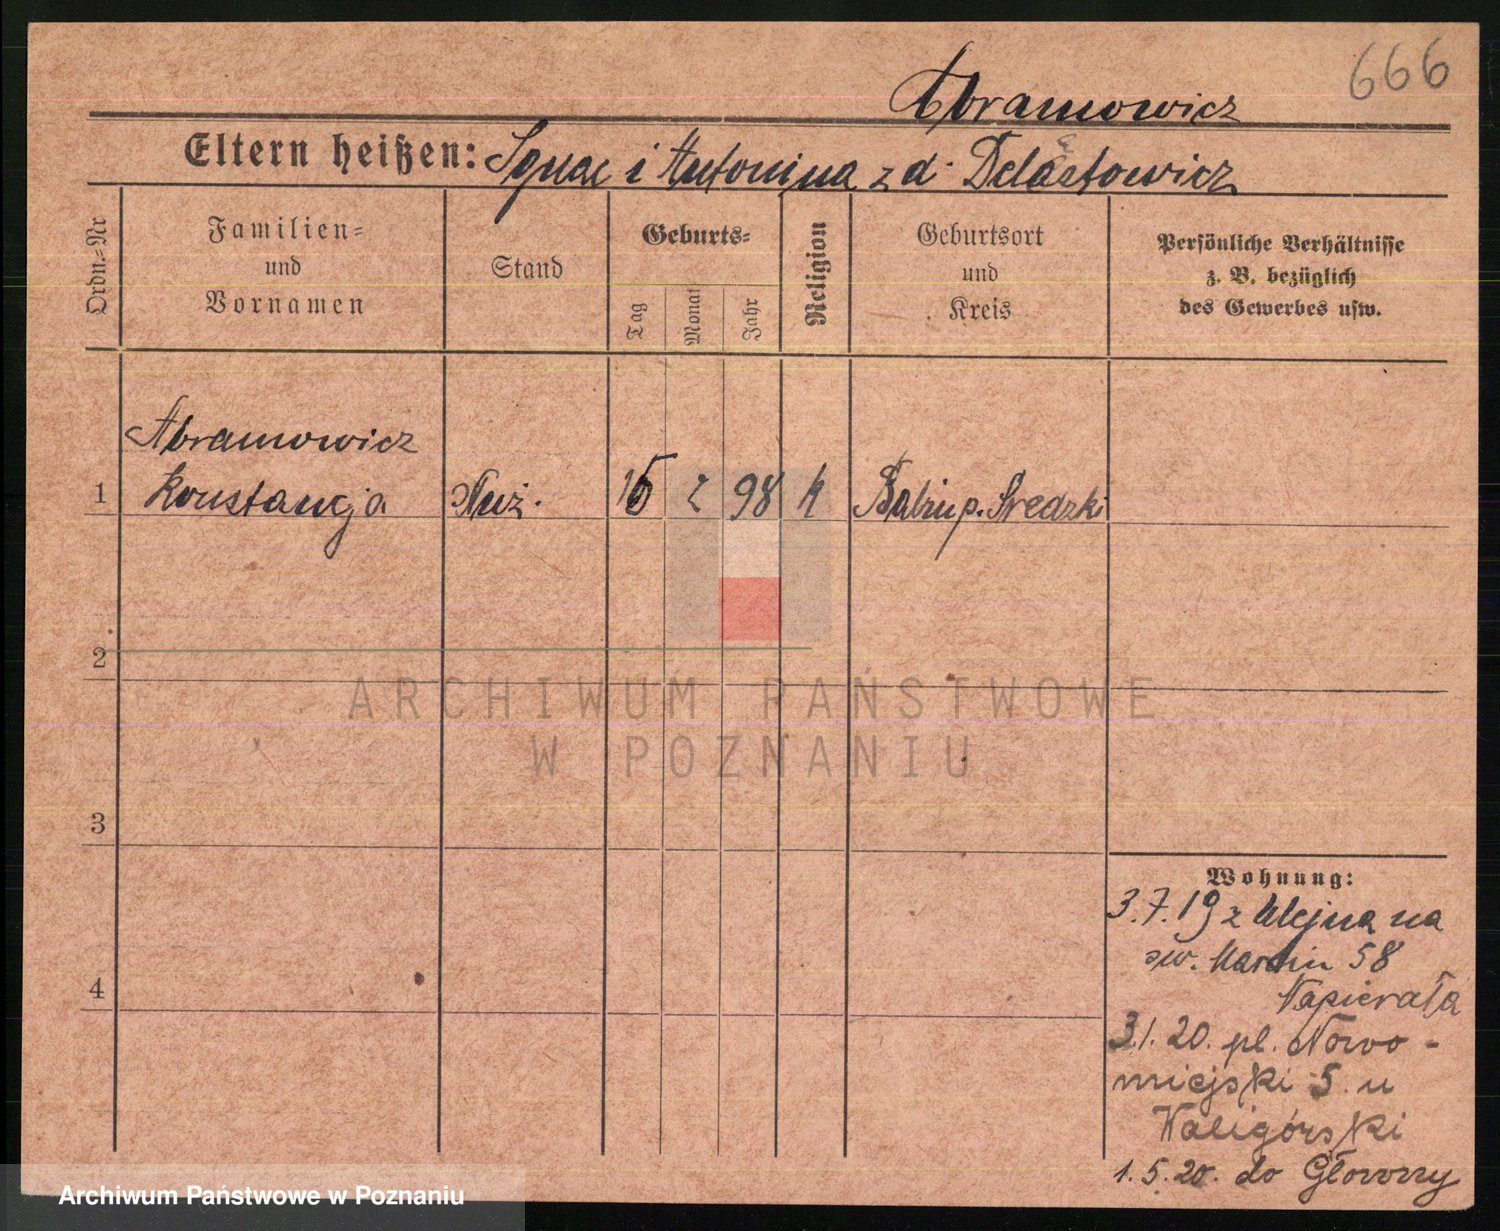 666
Abramowicz
Eltern heißen: Ignac i Antonina z d.
Ordn.=Nr
Familien=
und
Vornamen
Stand
Geburts=
Tag
Monat
Jahr
Religion
Geburtsort
und
Kreis
Persönliche Verhältnisse
z. B. bezüglich
des Gewerbes usw.
Abramowicz
1 Konstancja 2 98 k p. Sredzki
2
3
4
Wohnung:
3.7.19 z na
św. Marcin 58
Napierała
3.1.20. pl. Nowo-
miejski 5 u
Kaligórski
1.5.20. do
ARCHIWUM PAŃSTWOWE
W POZNANIU
Archiwum Państwowe w Poznaniu